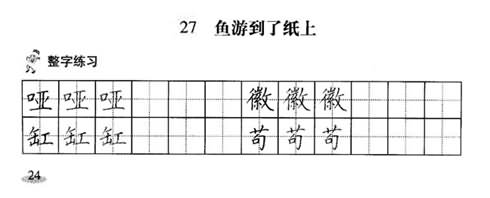 27 鱼游到了纸上
整字练习
哑 哑 哑 徽 徽 徽
缸 缸 缸 苟 苟 苟
24